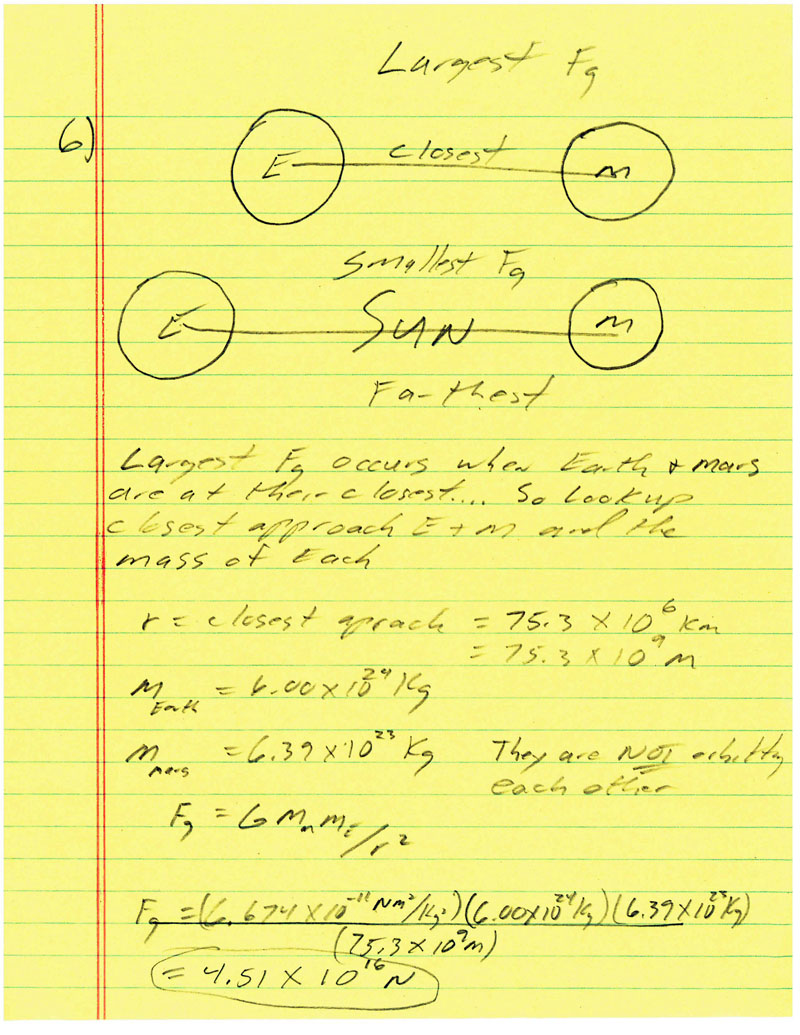 Largest Fg
6)
E closest M
Smallest Fg
E SUN M
Farthest
Largest Fg occurs when Earth + mars
are at their closest.... So Lookup
closest approach E + M and the
mass of Each
r = closest aprach = 75.3 × 10⁶ Km
= 75.3 × 10⁹ M
M Earth = 6.00 × 10²⁴ Kg
M mars = 6.39 × 10²³ Kg They are NOT orbitty
each other
Fg = G Mm mE / r²
Fg = (6.674 × 10⁻¹¹ Nm²/Kg²)(6.00×10²⁴ Kg)(6.39 × 10²³ Kg)
(75.3 × 10⁹ m)
= 4.51 × 10¹⁶ N